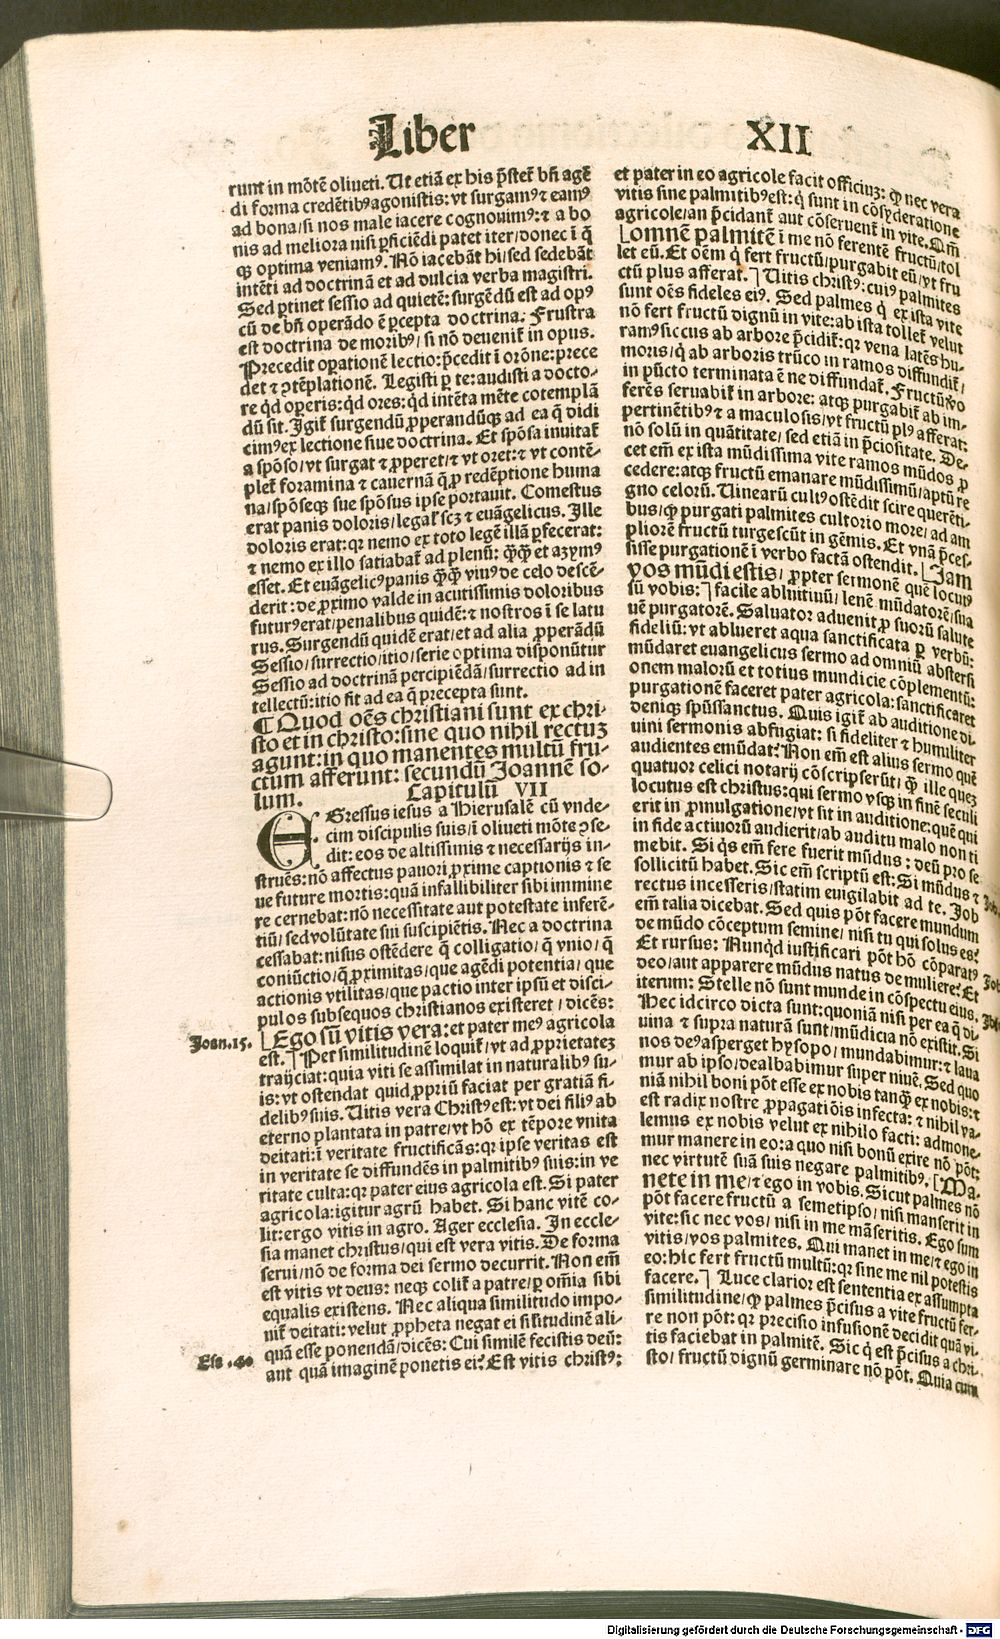 Liber XII
runt in mōtē oliueti. Ut etiā ex his p̄ſteť bn̄ agē
di forma credētibꝰagonistis: vt surgamꝰ ⁊ eamꝰ
ad bona/si nos male iacere cognouimꝰ: ⁊ a bo
nis ad meliora nisi ꝑficiēdi patet iter/donec ī q̄
qꝫ optima veniamꝰ. Nō iacebāt hi/sed sedebāt
intēti ad doctrinā et ad dulcia verba magistri.
Sed ꝑtinet sessio ad quietē: surgēdū est ad opꝰ
cū de bn̄ operādo ē p̄cepta doctrina. Frustra
est doctrina de moribꝰ/ si nō deueniť in opus.
Precedit oꝑationē lectio: p̄cedit ī orōne: prece
det ⁊ ꝯtēplationē. Legisti ꝑ te: audisti a docto-
re qd̄ oꝑeris: qd̄ ores: qd̄ intēta mēte cotemplā
dū sit. Igiť surgendū ꝓperandūqꝫ ad ea q̄ didi
cimꝰ ex lectione siue doctrina. Et spōsa inuitať
a spōso/vt surgat ⁊ ꝓperet/⁊ vt oret: ⁊ vt contē-
pleť foramina ⁊ cauernā q̄ ꝓ redēptione huma
na/spōseqꝫ sue spōsus ipse portauit. Comestus
erat panis doloris/legať scꝫ ⁊ euāgelicus. Ille
doloris erat: qꝛ nemo ex toto legē illā ꝑfecerat:
⁊ nemo ex illo satiabať ad plenū: qꝙ̄ et azymꝰ
esset. Et euāgelicꝰ panis qꝙ̄ viuꝰ de celo descē-
derit: de ꝓximo valde in acutissimis doloribus
futurꝰ erat/penalibus quidē: ⁊ nostros ī se latu
rus. Surgendū quidē erat/et ad alia ꝓperādū
Sessio/surrectio/itio/serie optima disponūtur
Sessio ad doctrinā percipiēdā/surrectio ad in
tellectū: itio fit ad ea q̄ precepta sunt.
¶ Quod oēs christiani sunt ex chri-
sto et in christo: sine quo nihil rectuꝫ
agunt: in quo manentes multū fru-
ctum afferunt: secundū Joannē so-
lum. Capitulū VII
EGressus iesus a Hierusalē cū vnde-
cim discipulis suis/ī oliueti mōte ꝯse-
dit: eos de altissimis ⁊ necessarijs in-
struēs: nō affectus pauori ꝓxime captionis ⁊ se
ue future mortis: quā infallibiliter sibi immine
re cernebat: nō necessitate aut potestate inferē-
tiū/ sed volūtate sui suscipiētis. Nec a doctrina
cessabat: nisus ostēdere q̄ colligatio/q̄ vnio/q̄
coniūctio/q̄ ꝓximitas/que agēdi potentia/ que
actionis vtilitas/que pactio inter ipsū et disci-
pulos subsequos christianos existeret/ dicēs:
Joan.15. [Ego sū vitis vera: et pater meꝰ agricola
est.] Per similitudinē loquiť/vt ad ꝓprietateꝫ
traijciat: quia viti se assimilat in naturalibꝰ su-
is: vt ostendat quid ꝓpriū faciat per gratiā fi-
delibꝰ suis. Uitis vera Christꝰ est: vt dei filiꝰ ab
eterno plantata in patre/vt hō ex tēpore vnita
deitati: ī veritate fructificās: qꝛ ipse veritas est
in veritate se diffundēs in palmitibꝰ suis: in ve
ritate culta: qꝛ pater eius agricola est. Si pater
agricola: igitur agrū habet. Si hanc vitē co-
lit: ergo vitis in agro. Ager ecclesia. In eccle-
sia manet christus/qui est vera vitis. De forma
serui/nō de forma dei sermo decurrit. Non em̄
est vitis vt deus: neqꝫ coliť a patre/ꝑ om̄ia sibi
equalis existens. Nec aliqua similitudo impo-
niť deitati: velut ꝓpheta negat ei sil̄itudinē ali-
Esa.40. quā esse ponendā/dicēs: Cui similē fecistis deū:
aut quā imaginē ponetis ei? Est vitis christꝰ:
et pater in eo agricole facit officiuꝫ: ꝙ nec vera
vitis sine palmitibꝰ est: q̄ sunt in cōsyderatione
agricole/an p̄cidanť aut cōserueni in vite. Om̄
[omnē palmitē ī me nō ferentē fructū/tol
let eū. Et oēm q̄ fert fructū/purgabit eū/vt fru
ctū plus afferat.] Uitis christꝰ: cuiꝰ palmites
sunt oēs fideles eiꝰ. Sed palmes q̄ ex ista vite
nō fert fructū dignū in vite: ab ista tolleť velut
ramꝰ siccus ab arbore p̄cidiť: qꝛ vena latēs hu-
moris/q̄ ab arboris trūco in ramos diffundiť/
in pūcto terminata ē ne diffundať. Fructū ꝟo
ferēs seruabiť in arbore: atqꝫ purgabiť ab im-
pertinētibꝰ ⁊ a maculosis/vt fructū plꝰ afferat:
nō solū in quātitate/ sed etiā in p̄ciositate. De-
cet em̄ ex ista mūdissima vite ramos mūdos ꝓ
cedere: atqꝫ fructū emanare mūdissimū/aptū re
gno celorū. Uinearū cultꝰ ostēdit scire querēti-
bus/ꝙ purgati palmites cultorio more/ad am
pliorē fructū turgescūt in gēmis. Et vnā p̄ces-
sisse purgationē ī verbo factā ostendit. [Jam
vos mūdi estis/ ꝓpter sermonē quē locutꝰ
sū vobis:] facile abluitiuū/ lenē mūdatorē/sua
uē purgatorē. Saluator aduenit ꝓ suorū salute
fideliū: vt ablueret aqua sanctificata ꝑ verbū:
mūdaret euangelicus sermo ad omniū abstersi
onem malorū et totius mundicie cōplementū:
purgationē faceret pater agricola: sanctificaret
deniqꝫ spūssanctus. Quis igiť ab auditione di-
uini sermonis abfugiat: si fideliter ⁊ humiliter
audientes emūdat? Non em̄ est alius sermo quē
quatuor celici notarij cōscripserūt/ ꝙ ille queꝫ
locutus est christus: qui sermo vsqꝫ in finē seculi
erit in ꝓmulgatione/vt sit in auditione: quē qui
in fide actiuorū audierit/ab auditu malo non ti
mebit. Si qs̄ em̄ fere fuerit mūdus: deū pro se
sollicitū habet. Sic em̄ scriptū est: Si mūdus ⁊
rectus incesseris/statim euigilabit ad te. Job
em̄ talia dicebat. Sed quis pōt facere mundum
de mūdo cōceptum semine/ nisi tu qui solus es?
Et rursus: Nunqd̄ iustificari pōt hō cōparatꝰ
deo/aut apparere mūdus natus de muliere? Et
iterum: Stelle nō sunt munde in cōspectu eius.
Nec idcirco dicta sunt: quoniā nisi per ea q̄ di-
uina ⁊ supra naturā sunt/mūdicia nō existit. Si
nos deꝰ asperget hysopo/ mundabimur: ⁊ laua
mur ab ipso/dealbabimur super niuē. Sed quo
niā nihil boni pōt esse ex nobis tanꝙ̄ ex nobis: ⁊
est radix nostre ꝓpagatiōis infecta: ⁊ nihil va-
lemus ex nobis velut ex nihilo facti: admone-
mur manere in eo: a quo nisi bonū exire nō pōt:
nec virtutē suā suis negare palmitibꝰ. [Ma-
nete in me/⁊ ego in vobis. Sicut palmes nō
pōt facere fructū a semetipso/ nisi manserit in
vite: sic nec vos/ nisi in me māseritis. Ego sum
vitis/vos palmites. Qui manet in me/⁊ ego in
eo: hic fert fructū multū: qꝛ sine me nil potestis
facere.] Luce clarior est sententia ex assumpta
similitudine/ꝙ palmes p̄cisus a vite fructū fer-
re non pōt: qꝛ precisio infusionē decidit quā vi-
tis faciebat in palmitē. Sic q̄ est p̄cisus a chri-
sto/ fructū dignū germinare nō pōt. Quia cum
Digitalisierung gefördert durch die Deutsche Forschungsgemeinschaft - DFG